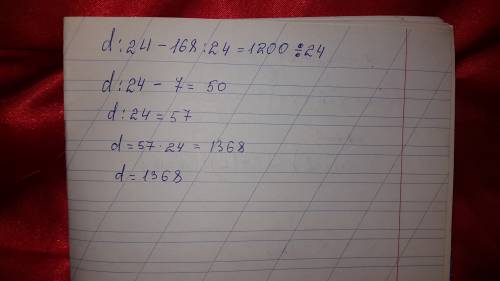 d:24-168:24=1200:24
d:24-7=50
d:24=57
d=57·24=1368
d=1368